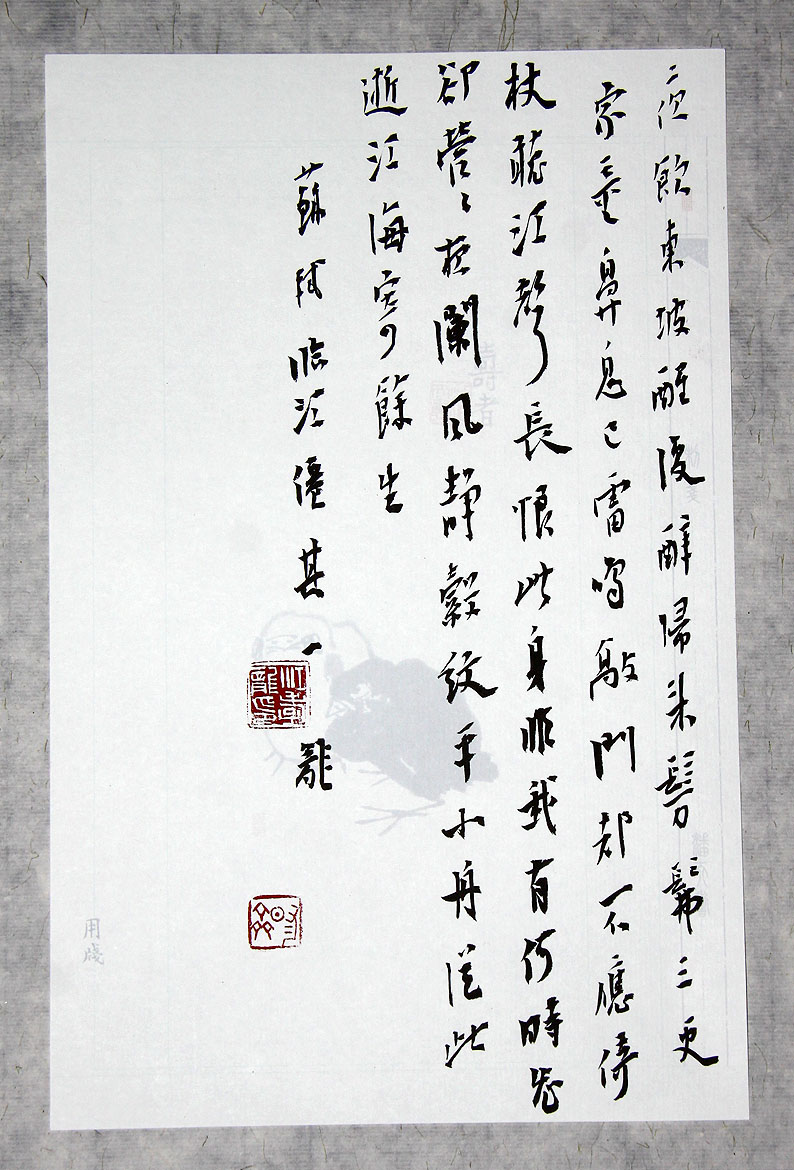 夜飲東坡醒復醉歸來髣髴三更
家童鼻息已雷鳴敲門都不應倚
杖聽江聲長恨此身非我有何時忘
卻營〻夜闌風靜縠紋平小舟從此
逝江海寄餘生
蘇軾臨江僊其一
用牋
壽者